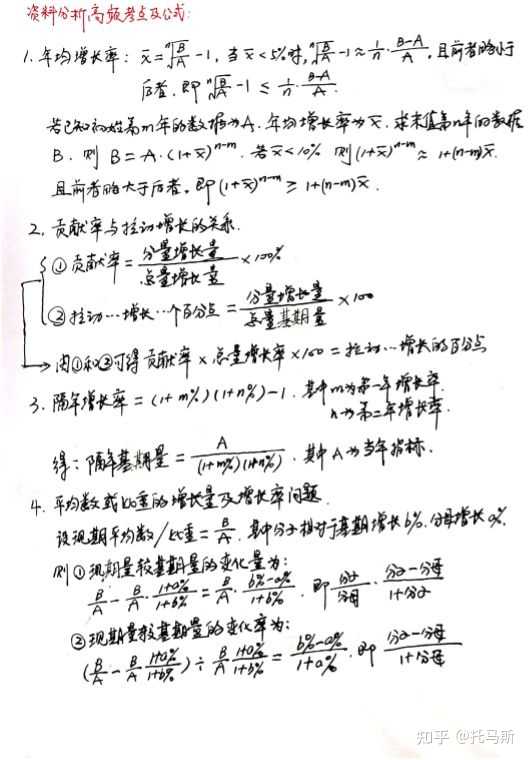 资料分析高频考点及公式:
1. 年均增长率: x̄ = ⁿ√(B/A) - 1, 当 x̄ < 5% 时, ⁿ√(B/A) - 1 ≈ 1/n · (B-A)/A, 且前者略小于
后者. 即 ⁿ√(B/A) - 1 ≤ 1/n · (B-A)/A.
若已知初始第m年的数据为A, 年均增长率为x̄, 求末值第n年的数据
B. 则 B = A·(1+x̄)ⁿ⁻ᵐ. 若 x̄ < 10% 则 (1+x̄)ⁿ⁻ᵐ ≈ 1+(n-m)x̄.
且前者略大于后者, 即 (1+x̄)ⁿ⁻ᵐ ≥ 1+(n-m)x̄.
2. 贡献率与拉动增长的关系.
① 贡献率 = 分量增长量/总量增长量 × 100%
② 拉动…增长…个百分点 = 分量增长量/总量基期量 × 100
由①和②可得 贡献率 × 总量增长率 × 100 = 拉动…增长的百分点
3. 隔年增长率 = (1+m%)(1+n%) - 1. 其中m为第一年增长率.
n为第二年增长率.
得: 隔年基期量 = A/((1+m%)(1+n%)). 其中A为当年指标.
4. 平均数或比重的增长量及增长率问题.
设现期平均数/比重 = B/A. 其中分子相对于基期增长b%. 分母增长a%.
则 ①现期量较基期量的变化量为:
B/A - B/A · (1+a%)/(1+b%) = B/A · (b%-a%)/(1+b%). 即 分子/分母 · (分子-分母)/(1+分子)
②现期量较基期量的变化率为:
(B/A - B/A (1+a%)/(1+b%)) ÷ B/A (1+a%)/(1+b%) = (b%-a%)/(1+a%). 即 (分子-分母)/(1+分母)
知乎 @托马斯